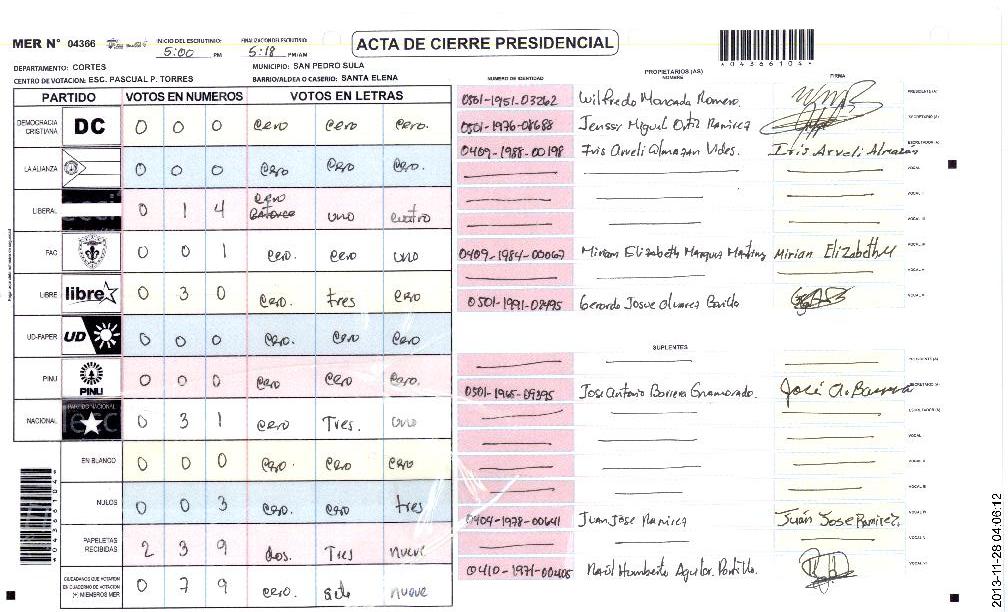 MER N° 04366
INICIO DEL ESCRUTINIO: 5:00 PM
FINALIZACION DEL ESCRUTINIO: 5:18 PM/AM
ACTA DE CIERRE PRESIDENCIAL
DEPARTAMENTO: CORTES
MUNICIPIO: SAN PEDRO SULA
CENTRO DE VOTACION: ESC. PASCUAL P. TORRES
BARRIO/ALDEA O CASERIO: SANTA ELENA
PARTIDO VOTOS EN NUMEROS VOTOS EN LETRAS
DEMOCRACIA CRISTIANA DC 0 0 0 cero cero cero.
LA ALIANZA 0 0 0 cero cero cero.
LIBERAL 0 1 4 cero catorce uno cuatro
FAC 0 0 1 cero. cero uno
LIBRE libre 0 3 0 cero. tres cero
UD-FAPER UD 0 0 0 cero. cero cero
PINU PINU 0 0 0 cero cero cero.
NACIONAL PARTIDO NACIONAL 0 3 1 cero Tres. uno
EN BLANCO 0 0 0 cero. cero cero
NULOS 0 0 3 cero. cero tres
PAPELETAS RECIBIDAS 2 3 9 dos. Tres nueve
CIUDADANOS QUE VOTARON EN CUADERNO DE VOTACION (+) MIEMBROS MER 0 7 9 cero. siete nueve
NUMERO DE IDENTIDAD
PROPIETARIOS (AS)
NOMBRE
FIRMA
0501-1951-03262 Wilfredo Moncada Romero. PRESIDENTE (A)
0501-1976-08688 Jenssy Miguel Ortiz Ramirez SECRETARIO (A)
0409-1988-00198 Iris Arveli Almazan Vides. Iris Arveli Almazan ESCRUTADOR (A)
VOCAL I
VOCAL II
VOCAL III
0409-1984-00067 Miriam Elizabeth Marquez Martinez Mirian Elizabeth M VOCAL IV
VOCAL V
0501-1991-02495 Gerardo Josue VOCAL VI
SUPLENTES
PRESIDENTE (A)
0501-1965-09395 Jose Antonio Barrera Enamorado. José A. Barrera SECRETARIO (A)
ESCRUTADOR (A)
VOCAL I
VOCAL II
VOCAL III
0404-1978-00641 Juan Jose Ramirez Juán Jose Ramirez. VOCAL IV
VOCAL V
0410-1971-00405 Raúl Humberto Aguilar. Portillo. VOCAL VI
04366104
2013-11-28 04:06:12